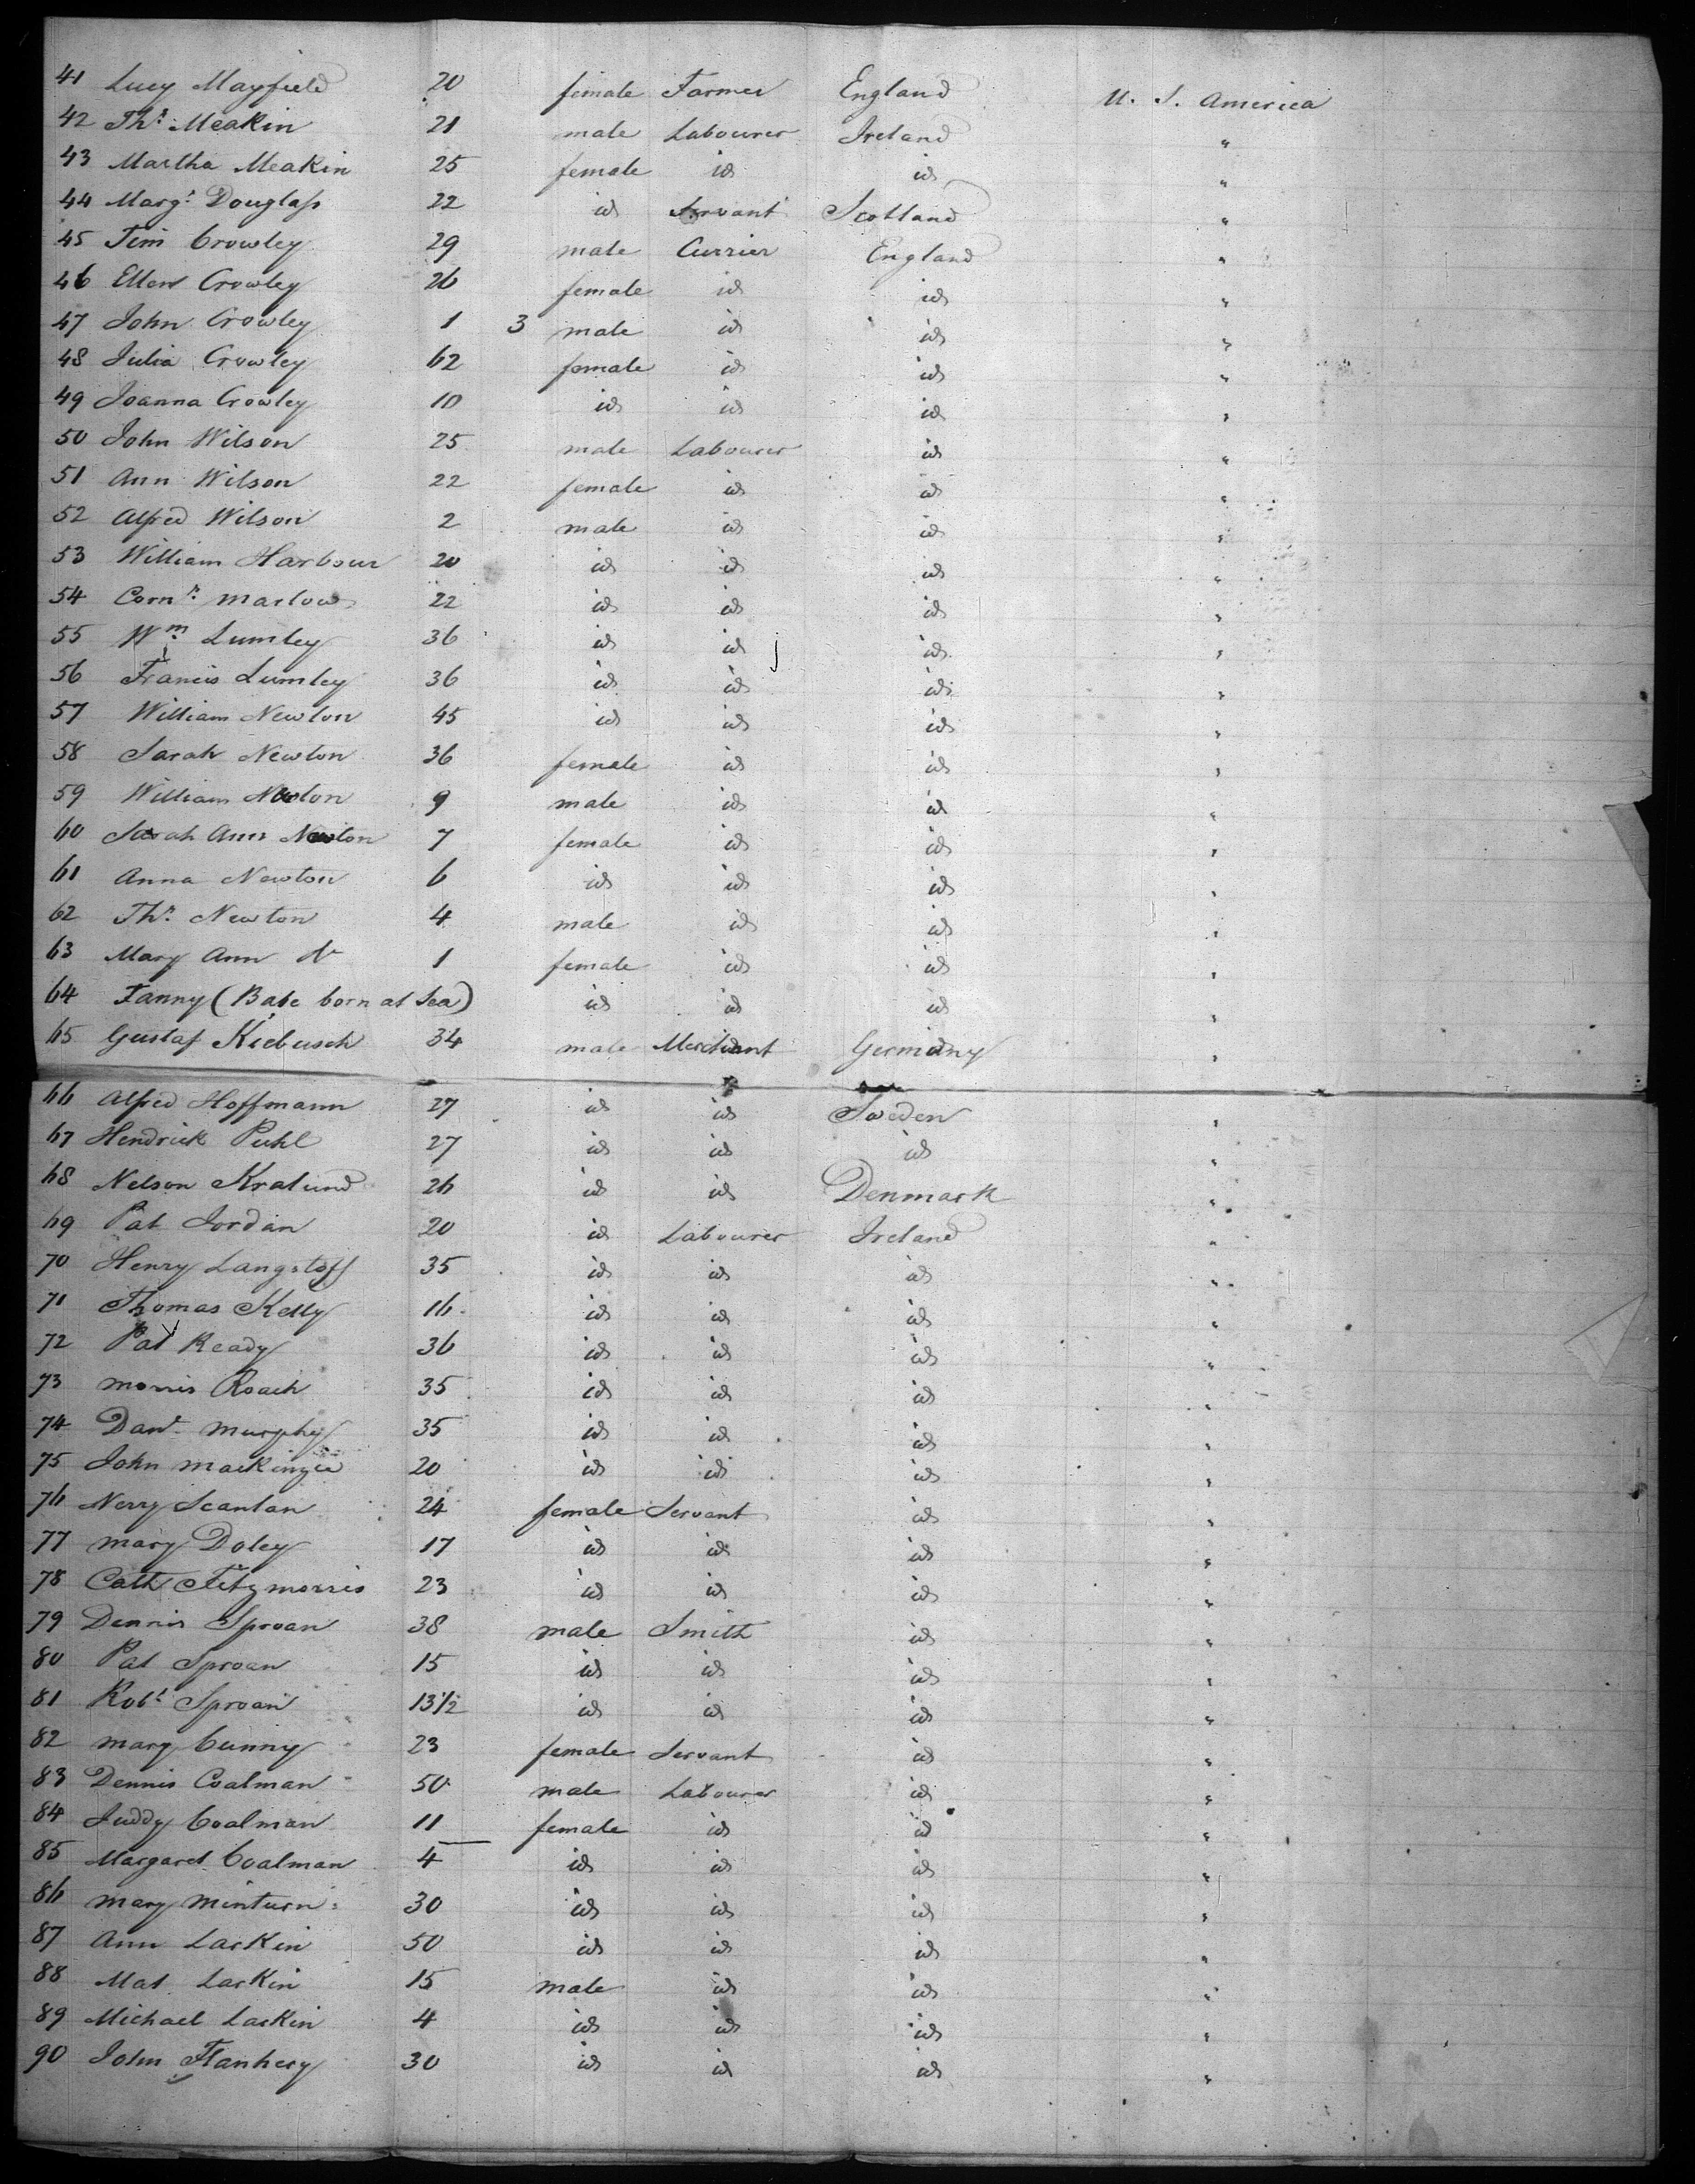 41 Lucy Mayfield 20 female Farmer England U. S. America
42 Thˢ Meakin 21 male Labourer Ireland "
43 Martha Meakin 25 female id id "
44 Margᵗ Douglass 22 id Servant Scotland "
45 Tim Crowley 29 male Currier England "
46 Ellen Crowley 26 female id id "
47 John Crowley 1 3 male id id "
48 Julia Crowley 62 female id id "
49 Joanna Crowley 10 id id id "
50 John Wilson 25 male Labourer id "
51 Ann Wilson 22 female id id "
52 Alfred Wilson 2 male id id "
53 William Harbour 20 id id id "
54 Cornˢ Marlow 22 id id id "
55 Wᵐ Lumley 36 id id id "
56 Francis Lumley 36 id id id "
57 William Newton 45 id id id "
58 Sarah Newton 36 female id id "
59 William Newton 9 male id id "
60 Sarah Ann Newton 7 female id id "
61 Anna Newton 6 id id id "
62 Thˢ Newton 4 male id id "
63 Mary Ann N 1 female id id "
64 Fanny (Babe born at Sea) id id id "
65 Gustaf Kiebusch 34 male Merchant Germany "
66 Alfred Hoffmann 27 id id Sweden "
67 Hendrick Puhl 27 id id id "
68 Nelson Kralund 26 id id Denmark "
69 Pat Jordan 20 id Labourer Ireland "
70 Henry Langstoff 35 id id id "
71 Thomas Kelly 16 id id id "
72 Pat Ready 36 id id id "
73 Morris Roach 35 id id id "
74 Danˡ Murphy 35 id id id "
75 John Mackingie 20 id id id "
76 Nerry Scanlan 24 female Servant id "
77 Mary Doley 17 id id id "
78 Cath Fitzmorris 23 id id id "
79 Dennis Sproan 38 male Smith id "
80 Pat Sproan 15 id id id "
81 Robᵗ Sproan 13½ id id id "
82 Mary Cunny 23 female Servant id "
83 Dennis Coalman 50 male Labourer id "
84 Juddy Coalman 11 female id id "
85 Margaret Coalman 4 id id id "
86 Mary Minturn 30 id id id "
87 Ann Larkin 50 id id id "
88 Mat Larkin 15 male id id "
89 Michael Larkin 4 id id id "
90 John Flanhery 30 id id id "